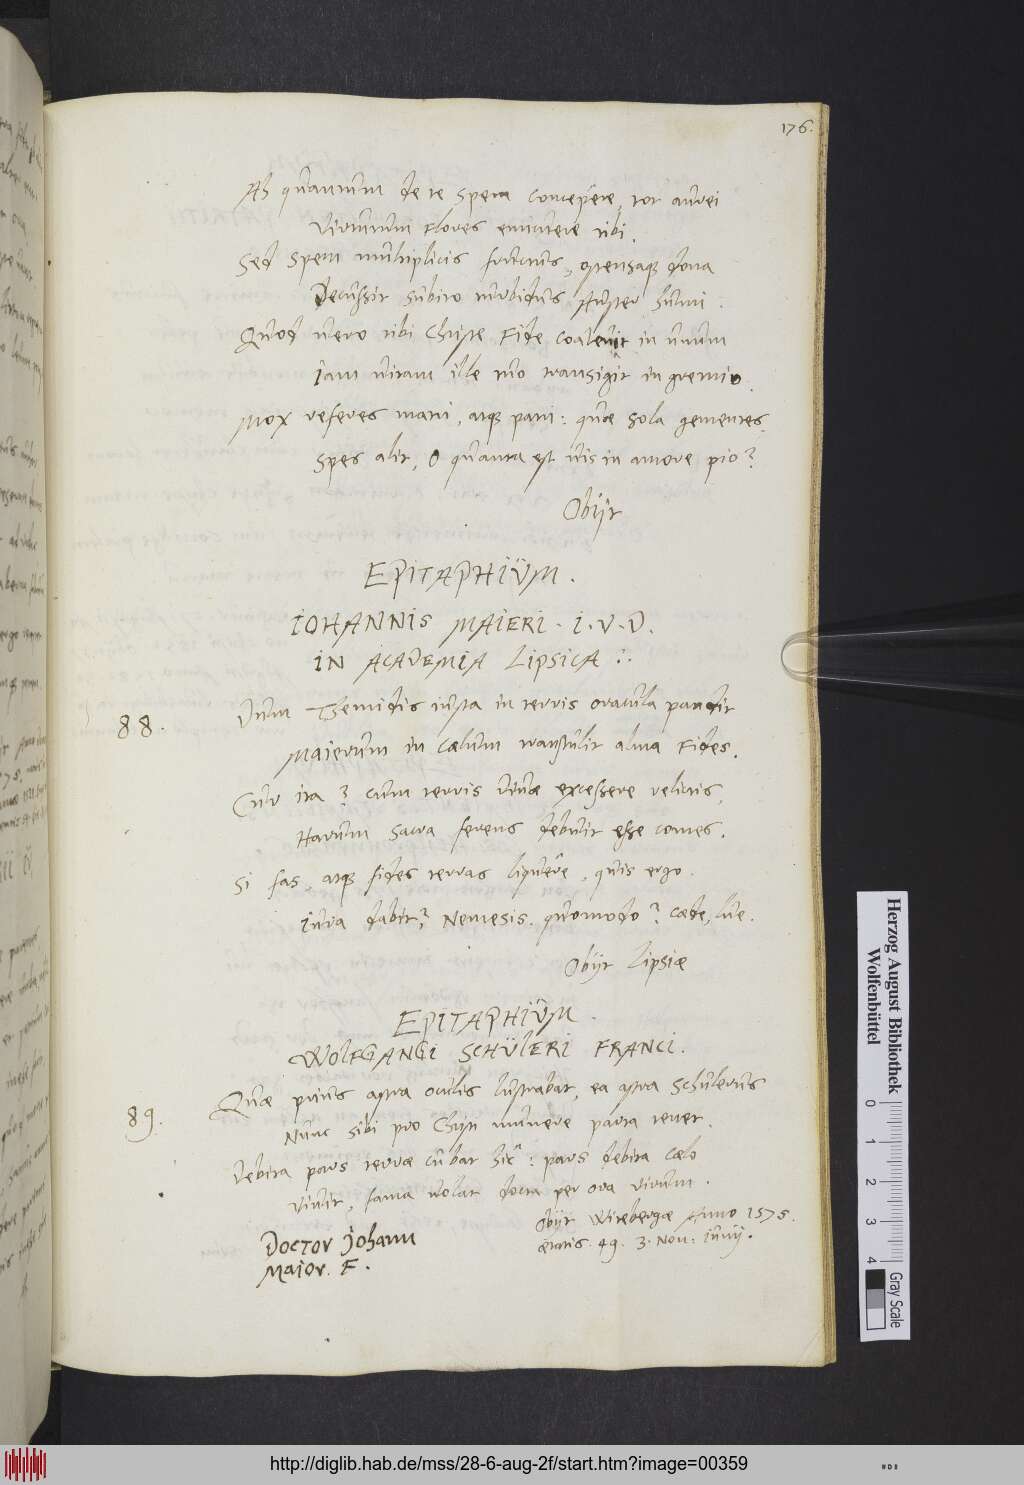 176.
Ah quantum de te spem concepere, tot aurei
Virtutum flores emicuere tibi.
Sed spem multiplicis fructus, ostensaque dona
Decussit subito turbidus Auster humi.
Quod vero tibi Christe Fide coaluit in unum
Iam vitam ille tuo transigit in gremio.
Mox referes matri, atque patri: quae sola gementes
Spes alit, O quanta est vis in amore pio?
Obijt
EPITAPHIŬM.
IOHANNIS MAIERI. I. V. D.
IN ACADEMIA LIPSICA ∴
88.
Dum Themidis iusta in terris oracula pandit
Maierum in caelum transtulit alma Fides.
Cur ita? cum terris divae excessere relictis,
Harum sacra ferens debuit esse comes.
Si fas, atque fides terras liquêre, quis ergo
Iura dabit? Nemesis. quomodo? caede, lue.
Obijt Lipsiae
EPITAPHIŬM.
WOLFGANGI SCHŬLERI FRANCI.
89.
Quae prius astra oculis lustrabat, ea astra Schulerus
Nunc sibi pro Christi munere parta tenet.
Debita pars terrae cubat hîc: pars debita caelo
Vivit, fama volat docta per ora virum.
Obijt Witebergae Anno 1575.
aetatis. 49. 3. Non: Iunij.
Doctor Johann
Maior. F.
Herzog August Bibliothek
Wolfenbüttel
0 1 2 3 4
Gray Scale
http://diglib.hab.de/mss/28-6-aug-2f/start.htm?image=00359